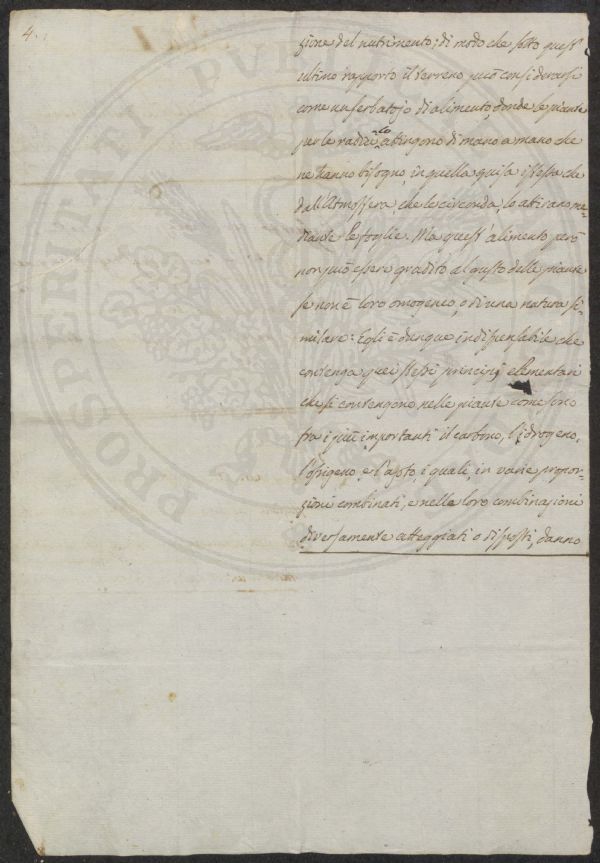 4.
zione del nutrimento; di modo che sotto quest'
ultimo rapporto il terreno può considerarsi
come un serbatojo di alimento, donde le piante
per le radici lo attingono di mano a mano che
ne hanno bisogno, in quella guisa istessa che
dall'Atmosfera, che le circonda, lo attirano me-
diante le foglie. Ma quest'alimento però
non può essere gradito al gusto delle piante
se non è loro omogeneo, o di una natura si-
milare: Egli è dunque indispensabile che
contenga quei stessi principj elementari
che si contengono nelle piante come sono
fra i più importanti il carbono, l'idrogeno,
l'ossigeno e l'azoto, i quali, in varie propor-
zioni combinati, e nelle loro combinazioni
diversamente atteggiati o disposti, danno
PROSPERITATI PUBLIC